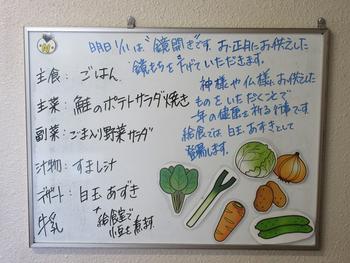 明日1/11は"鏡開き"です。お正月にお供えした
鏡もちを下げていただきます。
神様や仏様にお供えした
ものをいただくことで
一年の健康を祈る行事です
給食では白玉あずきとして
登場します。
主食：ごはん
主菜：鮭のポテトサラダ焼き
副菜：ごま入り野菜サラダ
汁物：すまし汁
デザート：白玉あずき
牛乳
給食室で
小豆を煮ます。